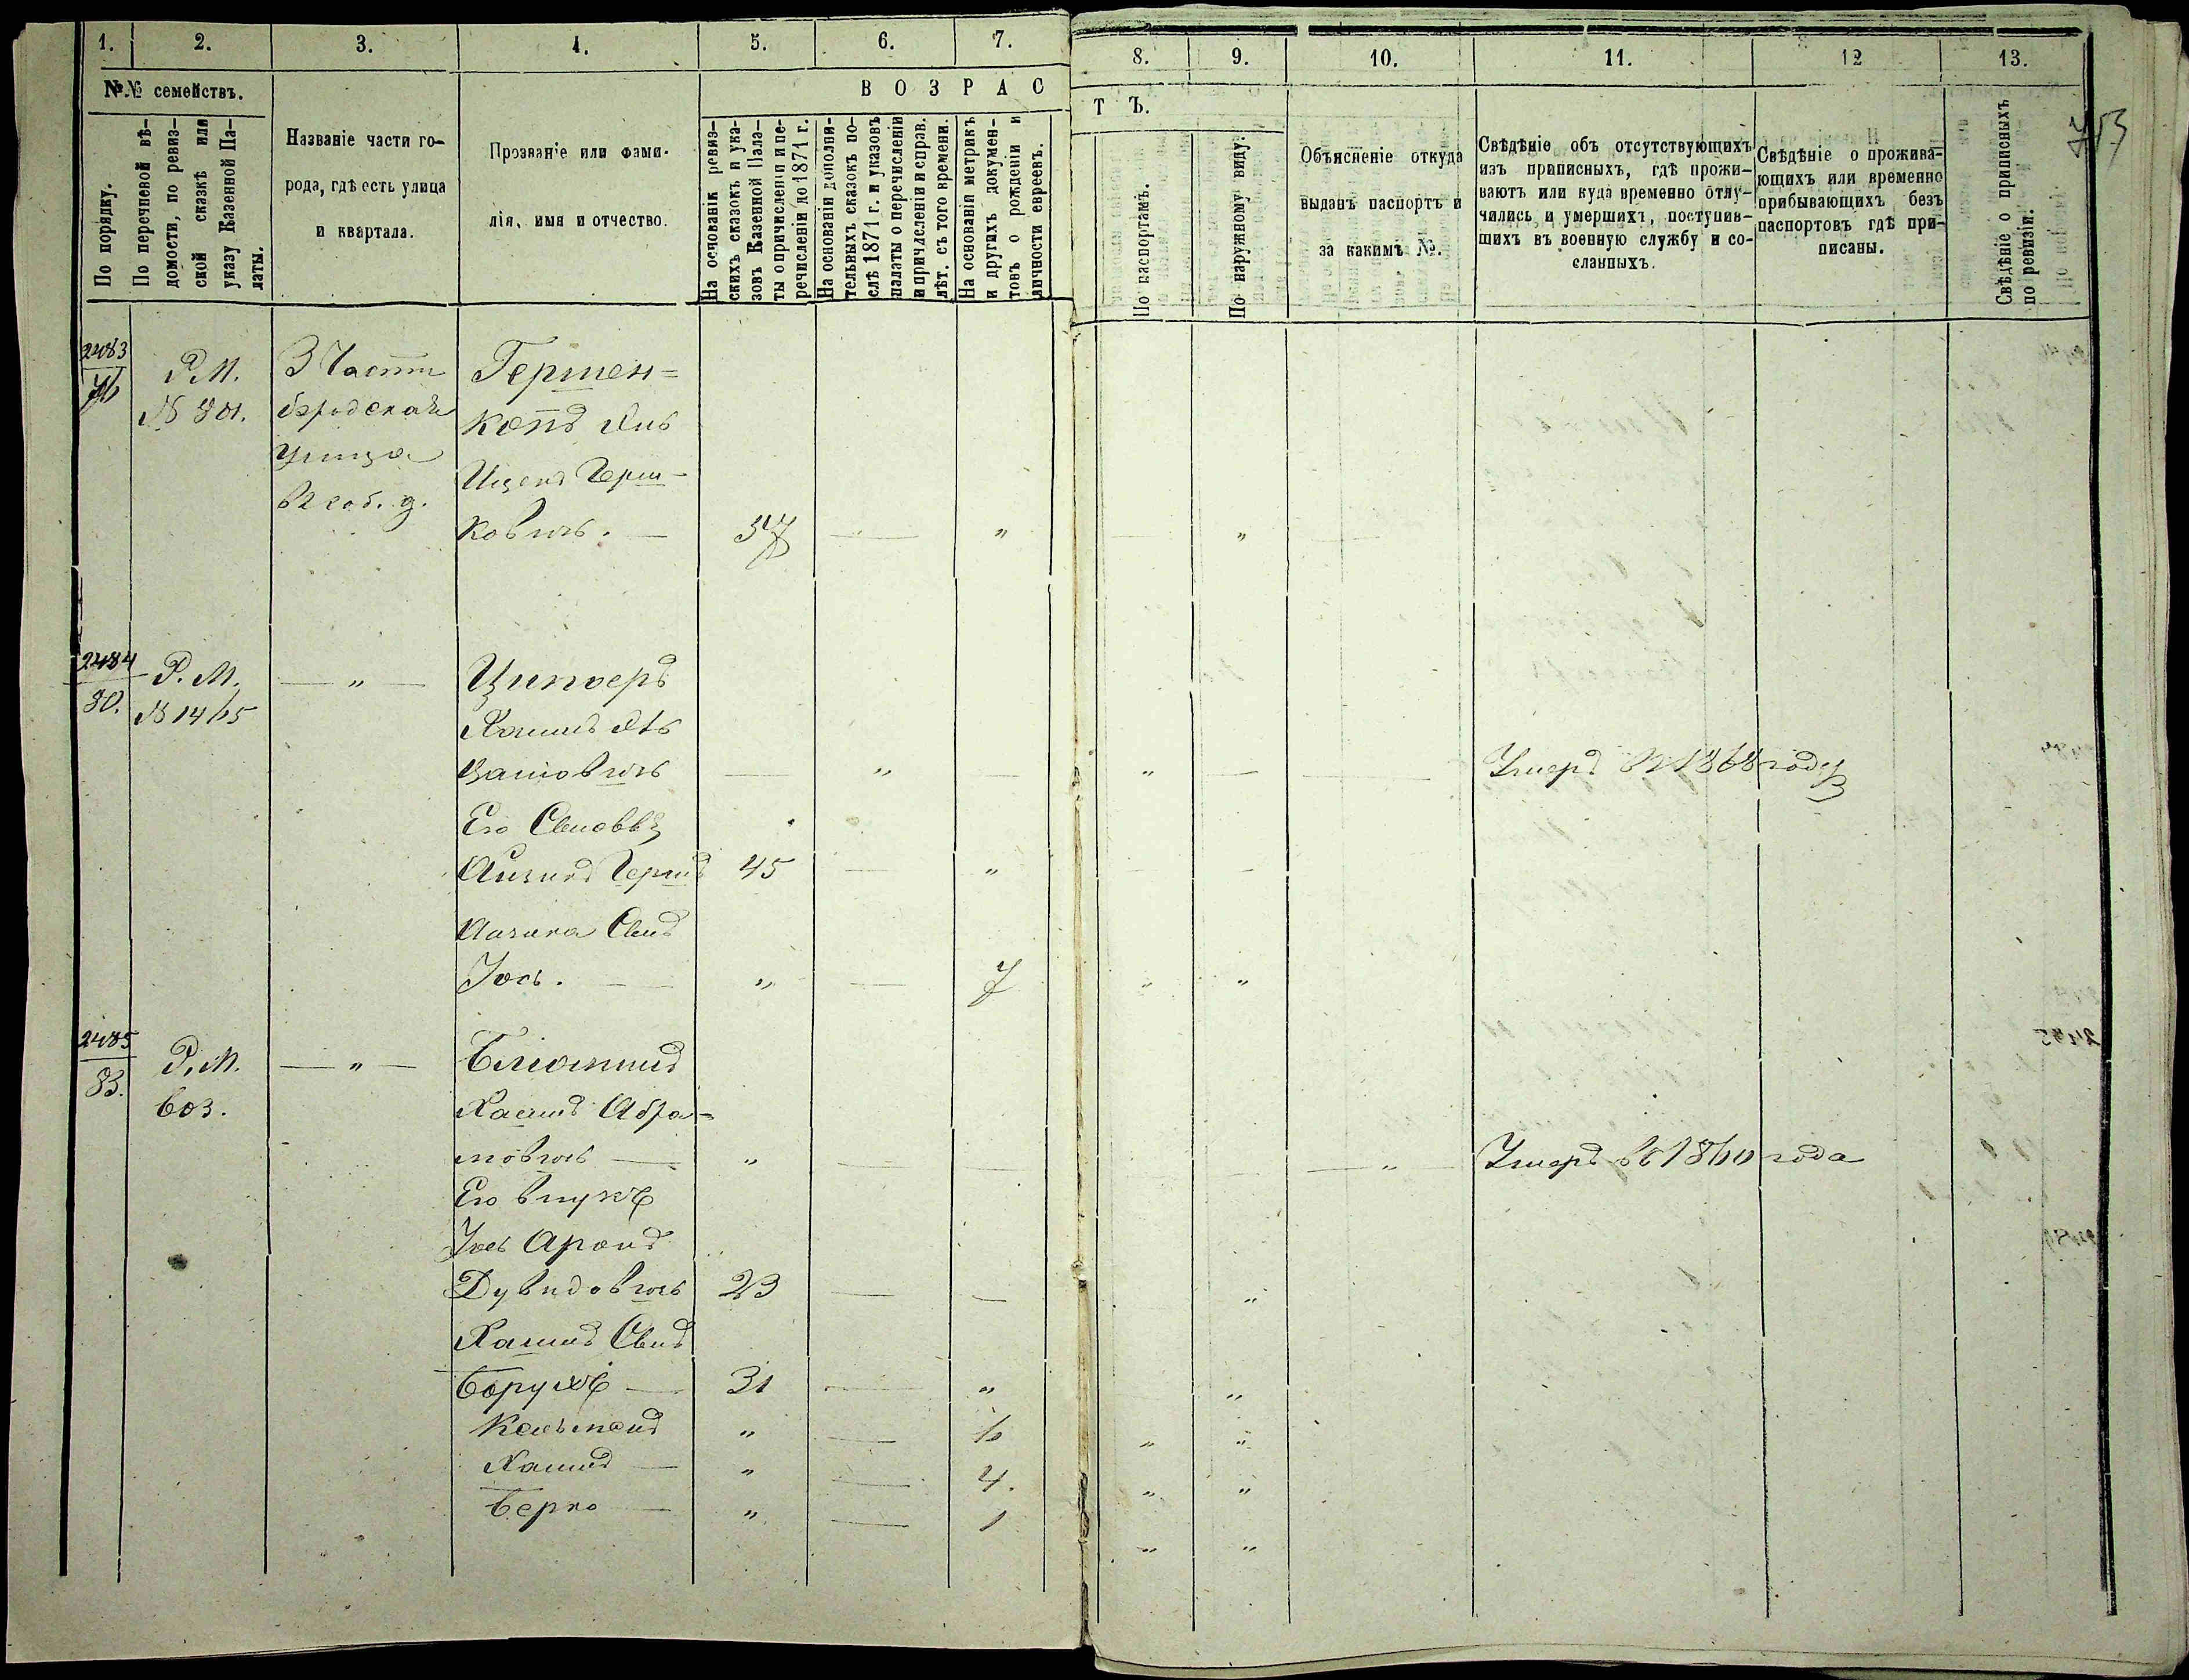 1.
2.
3.
4.
5.
6.
7.
8.
9.
10.
11.
12
13.
№№ семействъ.
По порядку.
По перечневой вѣ-
домости, по ревиз-
ской сказкѣ или
указу Казенной Па-
латы.
Названіе части го-
рода, гдѣ есть улица
и квартала.
Прозваніе или фами-
лія, имя и отчество.
ВОЗРАС
Т Ъ.
На основаніи ревиз-
скихъ сказокъ и ука-
зовъ Казенной Пала-
ты о причисленіи и пе-
речисленіи до 1871 г.
На основаніи дополни-
тельныхъ сказокъ по-
слѣ 1871 г. и указовъ
палаты о перечисленіи
и причисленіи и справ.
лѣт. съ того времени.
На основаніи метрикъ
и другихъ докумен-
товъ о рожденіи и
личности евреевъ.
По паспортамъ.
По наружному виду.
Объясненіе откуда
выданъ паспортъ и
за какимъ №.
Свѣдѣніе объ отсутствующихъ
изъ приписныхъ, гдѣ прожи-
ваютъ или куда временно отлу-
чились и умершихъ, поступив-
шихъ въ военную службу и со-
сланныхъ.
Свѣдѣніе о прожива-
ющихъ или временно
прибывающихъ безъ
паспортовъ гдѣ при-
писаны.
Свѣдѣніе о приписныхъ
по ревизіи.
753
2483
76
Р.М.
№ 801.
3 Части
улица
въ соб. д.
Гершен=
копъ
Ицекъ Герш-
ковичъ. — 57 — " — " —
2484
80.
Р. М.
№ 1465
— " —
Циперъ
Хаимъ
— " — " — — Умеръ въ 1868 году
Его Сыновья
Айзикъ Гершъ 45 — " — -
Айзика Сынъ
Іось. — " — 7 " "
2485
83.
Р. М.
603.
— " —
Хаимъ Абра=
мовичъ — " — — " — Умеръ въ 1860 года
Его внукъ
Іось Аронъ
Дувидовичъ 23 — — "
Хаимъ Сынъ
Борухъ — 31 — " "
Кельманъ " — 6 " "
Хаимъ — " — 4. " "
Берко — " — 1 " "